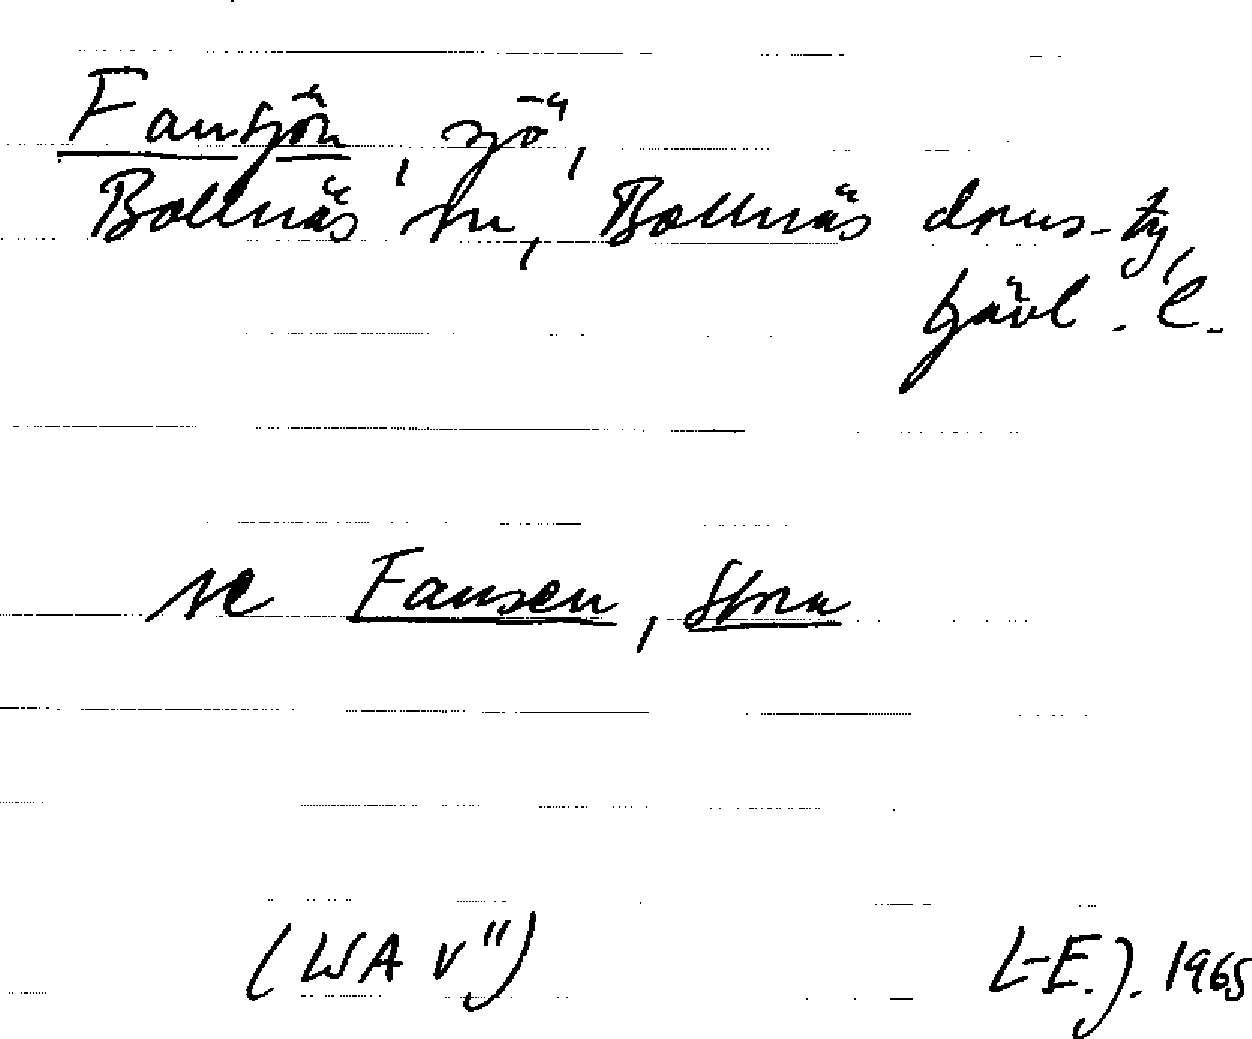 Fansjön, sjö,
Bollnäs sn, Bollnäs doms.-tg,
Gävl. l.
se Fansen, Stora
(WA V")
L-E.J. 1965